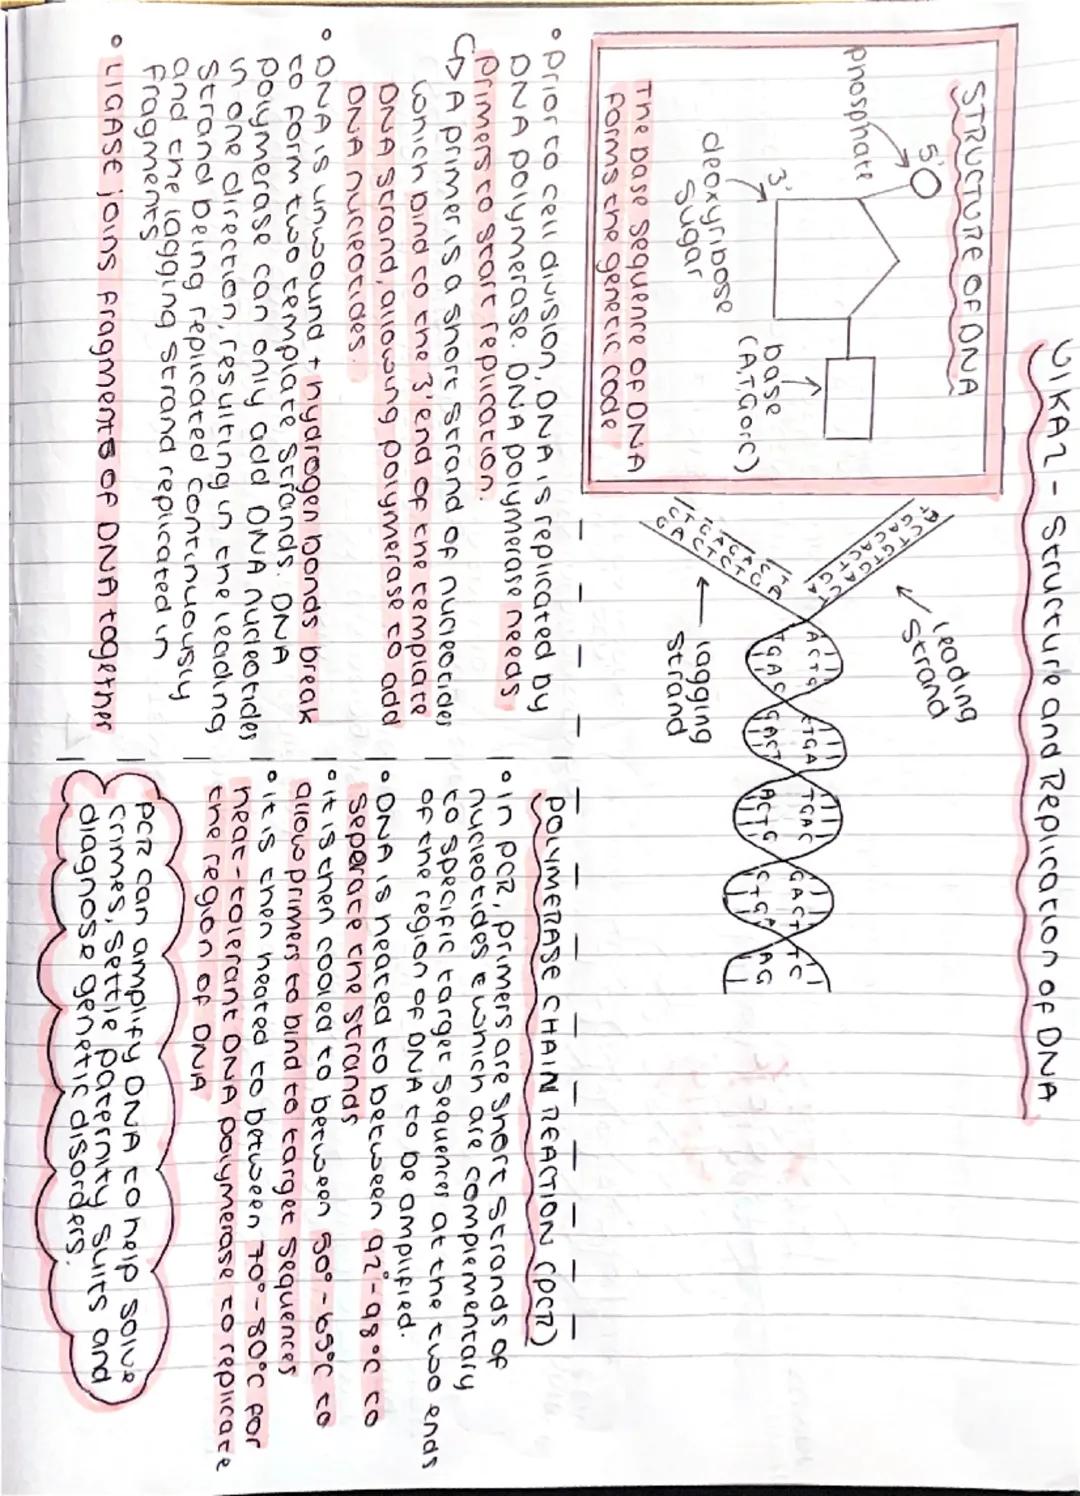 U1KA2 - Structure and Replication of DNA
STRUCTURE OF DNA
5'
phosphate
3'
deoxyribose
sugar
base
(A,T,G or C)
The base sequence of DNA
forms the genetic code
leading
strand
lagging
strand
• Prior to cell division, DNA is replicated by
DNA polymerase. DNA polymerase needs
primers to start replication.
↳ A primer is a short strand of nucleotides
which bind to the 3' end of the template
DNA strand, allowing polymerase to add
DNA nucleotides.
• DNA is unwound + hydrogen bonds break
to form two template strands. DNA
polymerase can only add DNA nucleotides
in one direction, resulting in the leading
strand being replicated continuously
and the lagging strand replicated in
fragments
• LIGASE joins fragments of DNA together
POLYMERASE CHAIN REACTION (PCR)
• in PCR, primers are short strands of
nucleotides which are complementary
to specific target sequences at the two ends
of the region of DNA to be amplified.
• DNA is heated to between 92°-98°C to
separate the strands
• it is then cooled to between 50°-65°C to
allow primers to bind to target sequences
• it is then heated to between 70°-80°C for
heat-tolerant DNA polymerase to replicate
the region of DNA
PCR can amplify DNA to help solve
crimes, settle paternity suits and
diagnose genetic disorders.